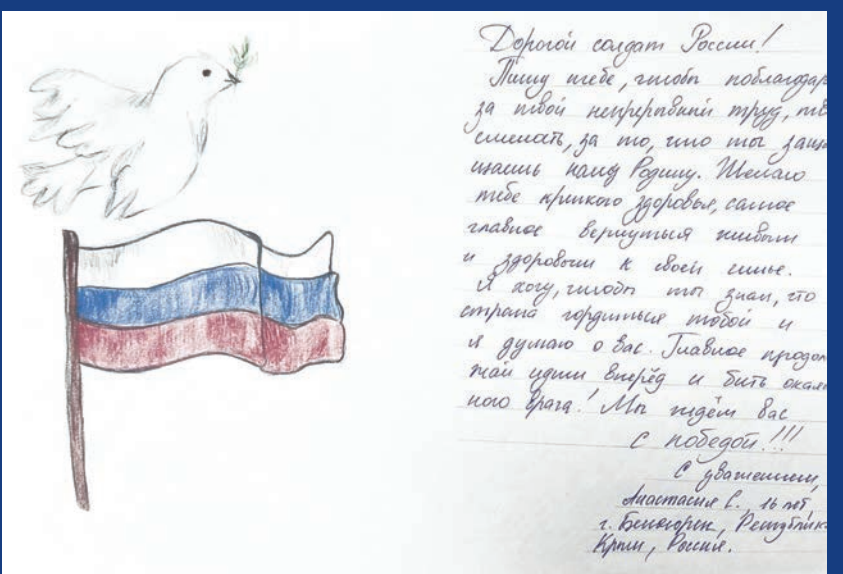 Дорогой солдат России!
Пишу тебе, чтобы поблагодар
за твой непрерывный труд, тв
смелость, за то, что ты защи
щаешь нашу Родину. Желаю
тебе крепкого здоровья, самое
главное вернуться живым
и здоровым к своей семье.
Я хочу, чтобы ты знал, что
страна гордиться тобой и
я думаю о Вас. Главное продол
жай идти вперёд и бить окая
ного врага! Мы ждём Вас
с победой!!!
С уважением,
Анастасия С., 16 лет,
г. Белогорск, Республик
Крым, Россия.